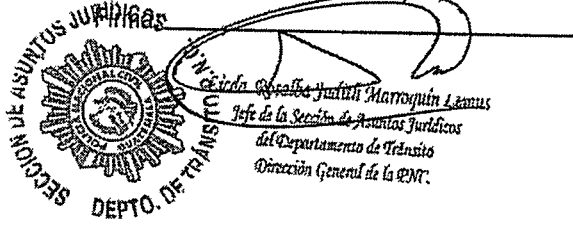 Firma:
SECCIÓN DE ASUNTOS JURÍDICOS
DEPTO. DE TRÁNSITO P.N.C.
Licda. Rosalba Judith Marroquín Lemus
Jefe de la Sección de Asuntos Jurídicos
del Departamento de Tránsito
Dirección General de la PNC.